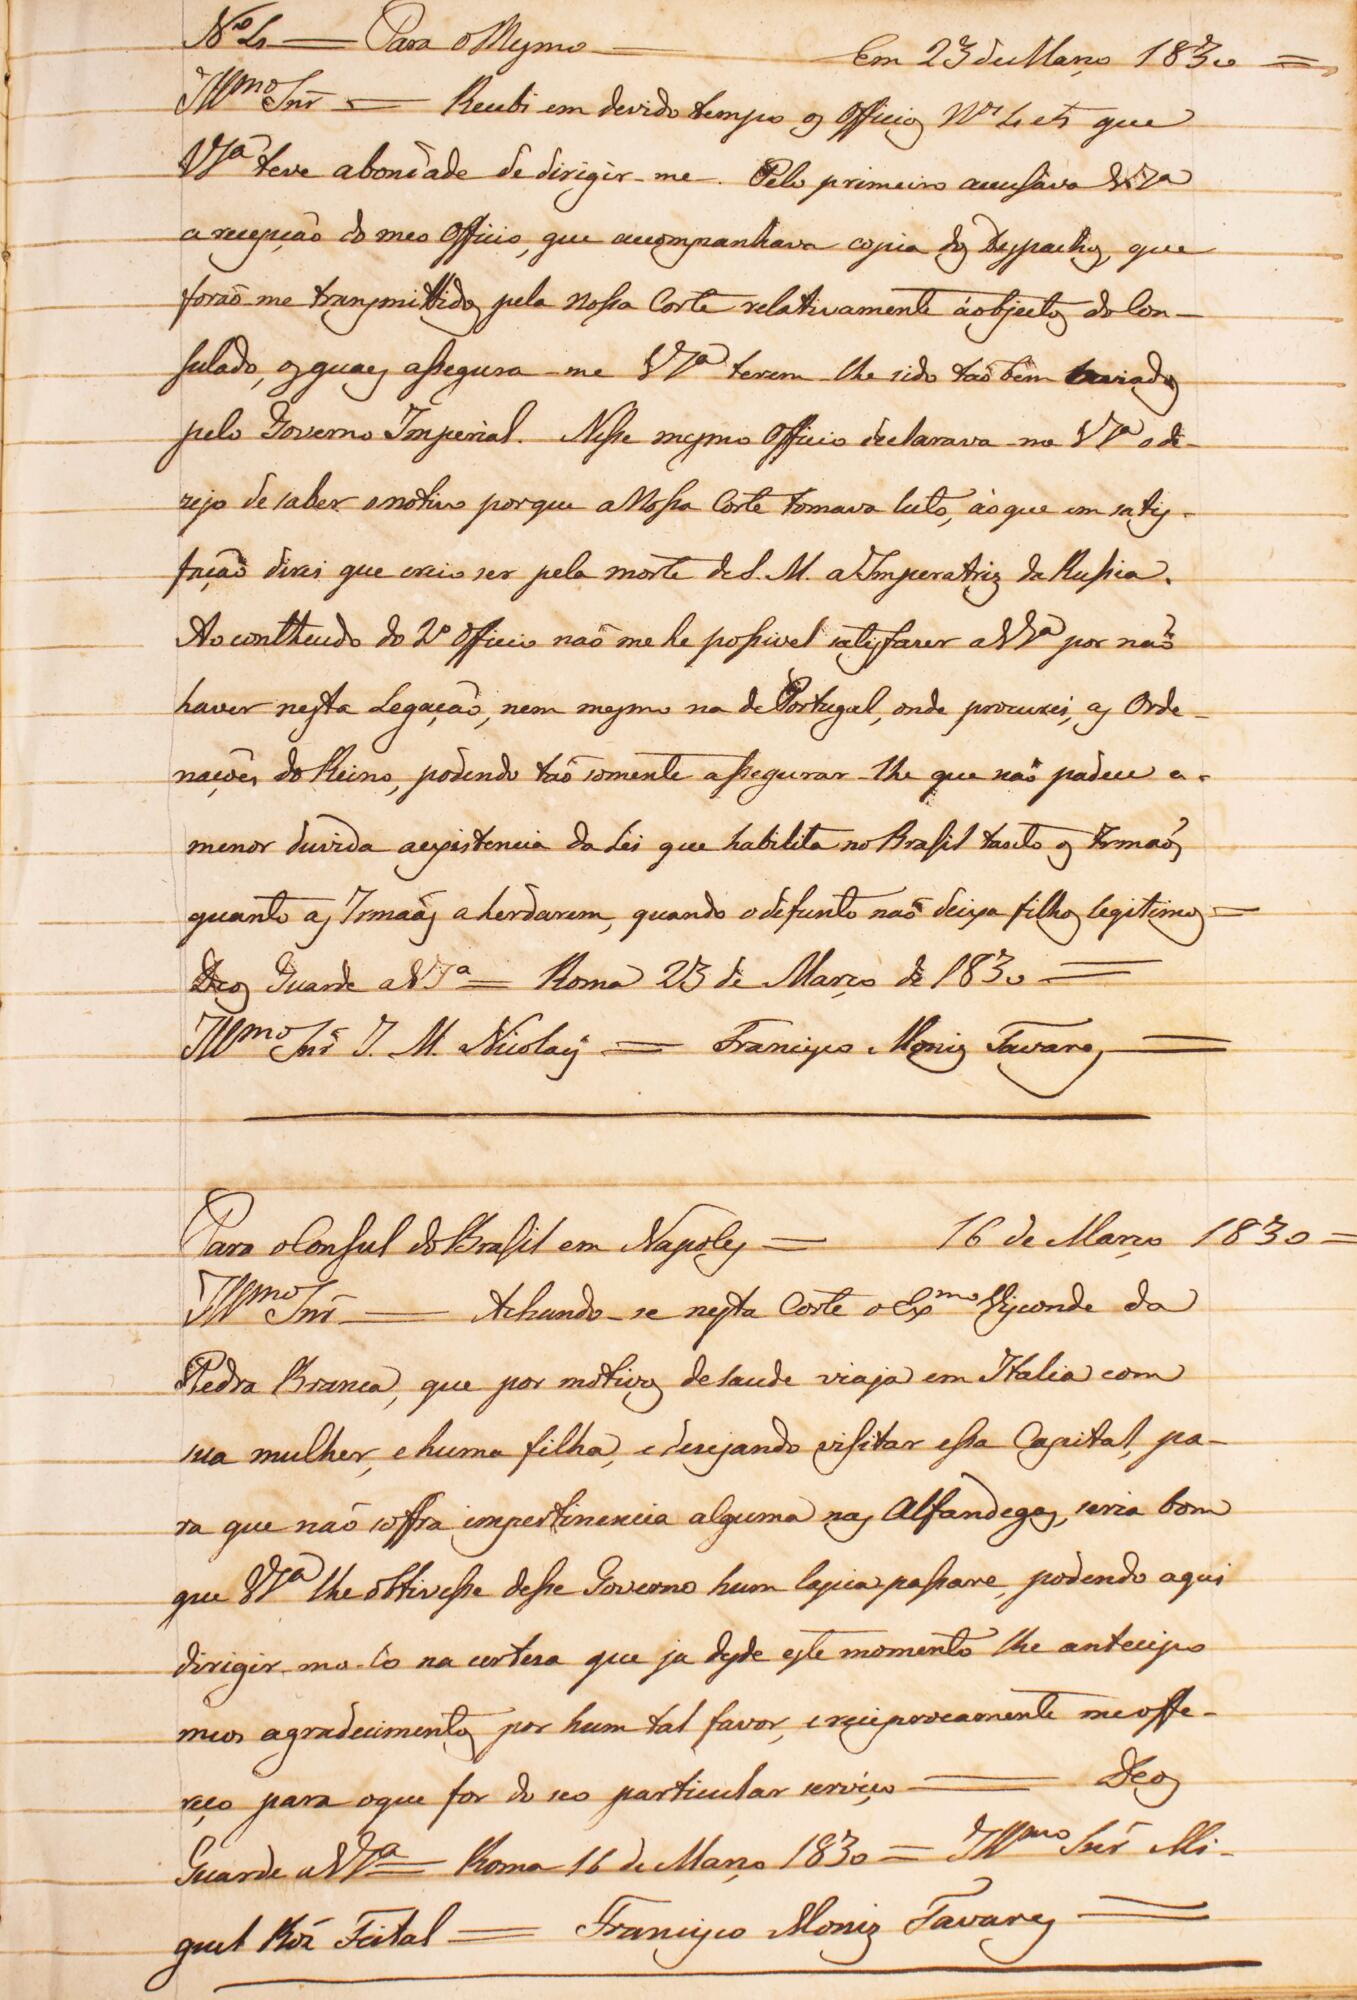 Nº 4 = Para o Mesmo = Em 23 de Março 1830 =
Illmo Snr = Recebi em devido tempo os Officios Nos 4 e 5 que
VSa teve a bondade de dirigir-me. Pelo primeiro accusava VSa
a recepção do meo Officio, que acompanhava copia dos Despachos, que
forão me transmittidos pela Nossa Corte relativamente áobjectos do Con-
sulado, os quaes assegura-me VSa terem-lhe sido tão bem enviados
pelo Governo Imperial. Nesse mesmo Officio declarava-me VSa o de-
sejo de saber o motivo porque a Nossa Corte tomava luto, áo que em satis-
fação direi que creio ser pela morte de S. M. a Imperatriz da Russia.
Ao contheudo do 2º Officio não me he possivel satisfazer a VSa por não
haver nesta Legação, nem mesmo na de Portugal, onde procurei, as Orde-
nações do Reino, podendo tão somente assegurar-lhe que não padece a-
menor duvida a existencia da Lei que habilita no Brasil tanto os Irmaõs
quanto as Irmaãs a herdarem, quando o defunto naõ deixa filhos legitimos =
Deos Guarde a VSa = Roma 23 de Março de 1830 =
Illmo Snr J. M. Nicolaÿ = Francisco Moniz Tavares =
Para o Consul do Brasil em Napoles = 16 de Março 1830 =
Illmo Snr = Achando-se nesta Corte o Exmo Visconde da
Pedra Branca, que por motivos de saude viaja em Italia com
sua mulher, e huma filha, e desejando visitar essa Capital, pa-
ra que não soffra impertinencia alguma nas Alfandegas, seria bom
que VSa lhe obtivesse desse Governo hum lascia passare, podendo aqui
dirigir-mo-lo na certesa que ja desde este momento lhe antecipo
meos agradecimentos por hum tal favor, e reciprocamente me offe-
reço para o que for do seo particular serviço = Deos
Guarde a VSa = Roma 16 de Março 1830 = Illmo Snr Mi-
guel Roz Feital = Francisco Moniz Tavares =